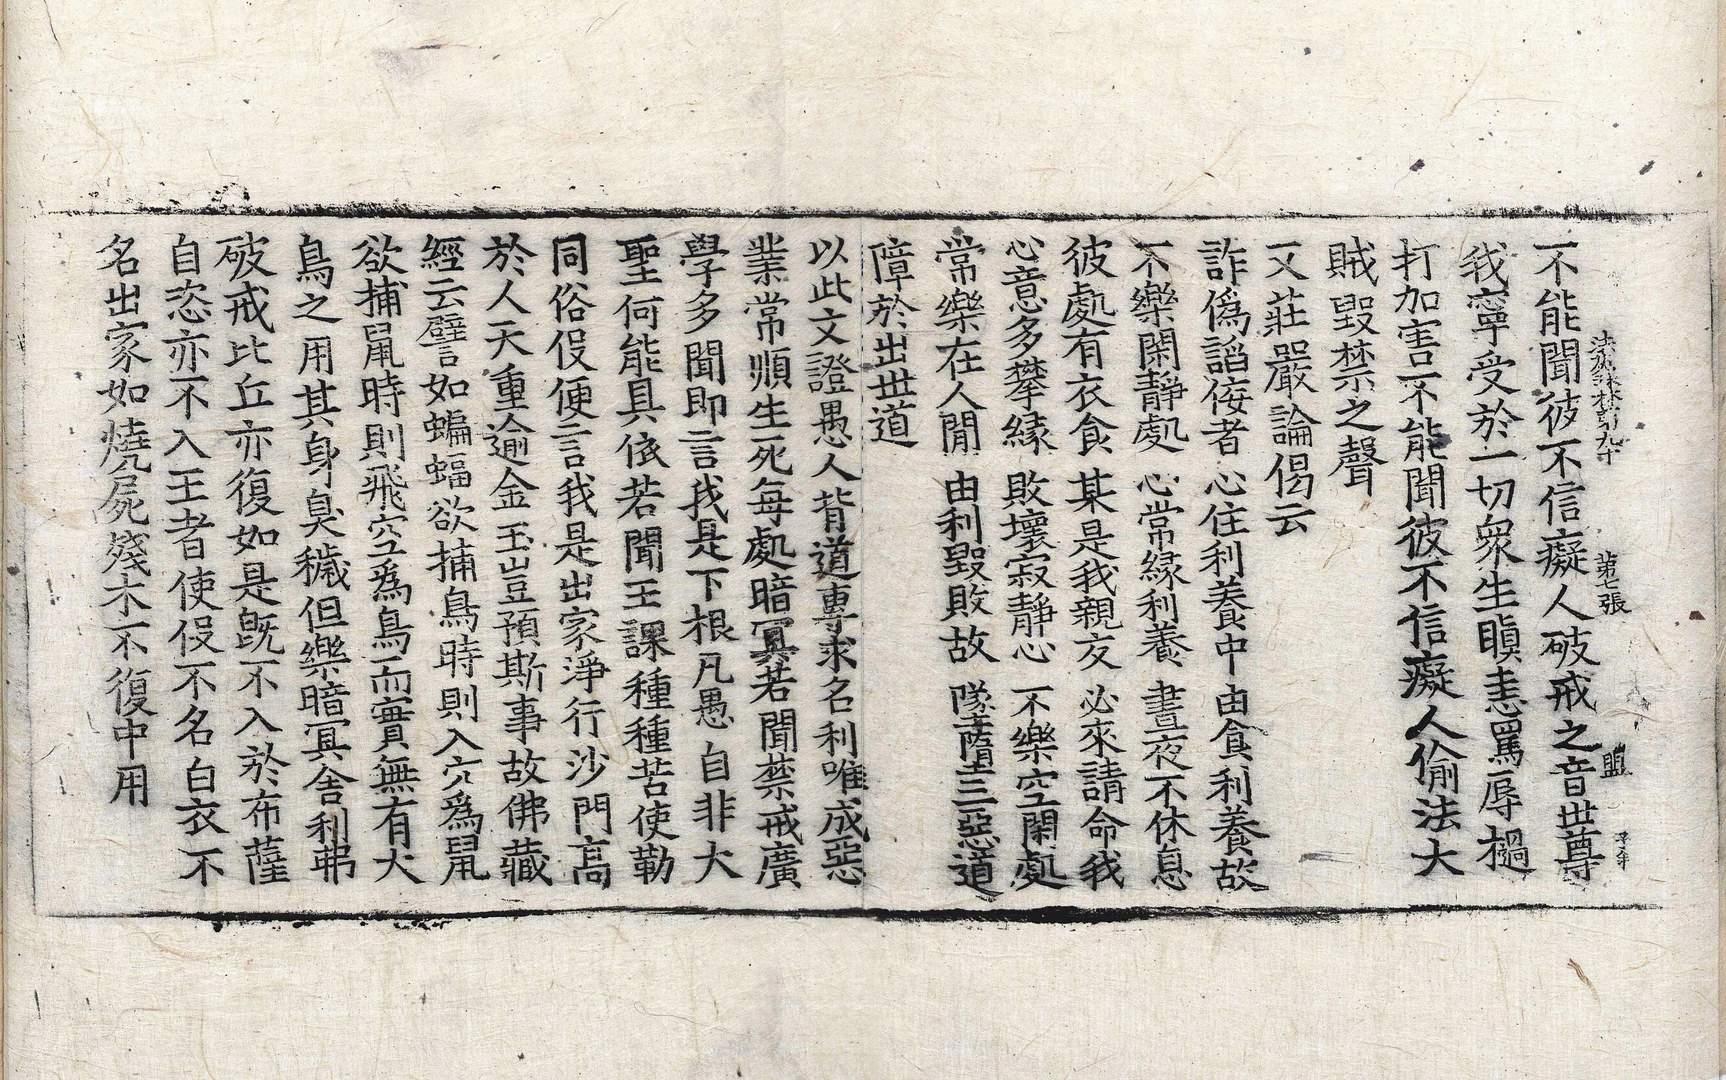 法苑珠林第九十 第七張 盟
不能聞彼不信癡人破戒之音世尊
我寧受於一切衆生瞋恚罵辱撾
打加害不能聞彼不信癡人偷法大
賊毀禁之聲
又莊嚴論偈云
詐僞謟侫者 心住利養中 由貪利養故
不樂閑靜處 心常緣利養 晝夜不休息
彼處有衣食 某是我親友 必來請命我
心意多攀緣 敗壞寂靜心 不樂空閑處
常樂在人閒 由利毀敗故 墜墮三惡道
障於出世道
以此文證愚人背道專求名利唯成惡
業常順生死每處暗冥若聞禁戒廣
學多聞即言我是下根凡愚自非大
聖何能具依若聞王課種種苦使勒
同俗伇便言我是出家淨行沙門高
於人天重逾金玉豈預斯事故佛藏
經云譬如蝙蝠欲捕鳥時則入穴爲鼠
欲捕鼠時則飛空爲鳥而實無有大
鳥之用其身臭穢但樂暗冥舍利弗
破戒比丘亦復如是旣不入於布薩
自恣亦不入王者使伇不名白衣不
名出家如燒屍殘木不復中用